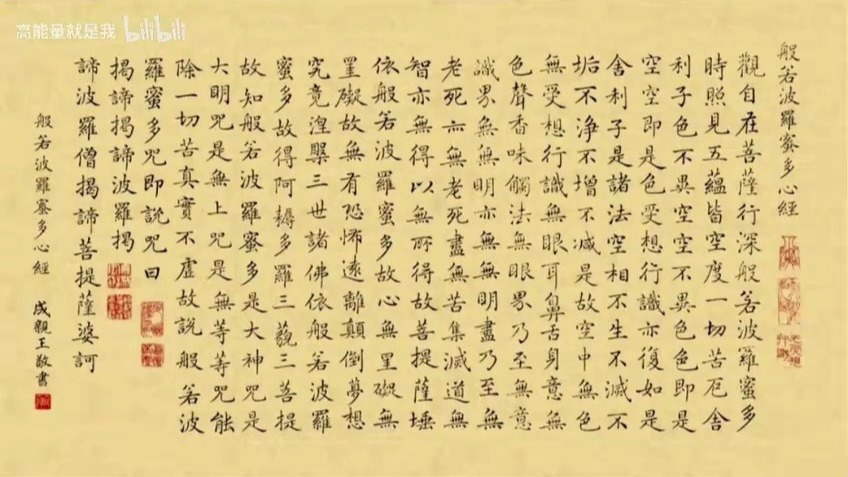 高能量就是我 bilibili
般若波羅蜜多心經
觀自在菩薩行深般若波羅蜜多
時照見五蘊皆空度一切苦厄舍
利子色不異空空不異色色即是
空空即是色受想行識亦復如是
舍利子是諸法空相不生不滅不
垢不淨不增不減是故空中無色
無受想行識無眼耳鼻舌身意無
色聲香味觸法無眼界乃至無意
識界無無明亦無無明盡乃至無
老死亦無老死盡無苦集滅道無
智亦無得以無所得故菩提薩埵
依般若波羅蜜多故心無罣礙無
罣礙故無有恐怖遠離顛倒夢想
究竟涅槃三世諸佛依般若波羅
蜜多故得阿耨多羅三藐三菩提
故知般若波羅蜜多是大神咒是
大明咒是無上咒是無等等咒能
除一切苦真實不虛故說般若波
羅蜜多咒即說咒曰
揭諦揭諦波羅揭
諦波羅僧揭諦菩提薩婆訶
般若波羅蜜多心經
成親王敬書